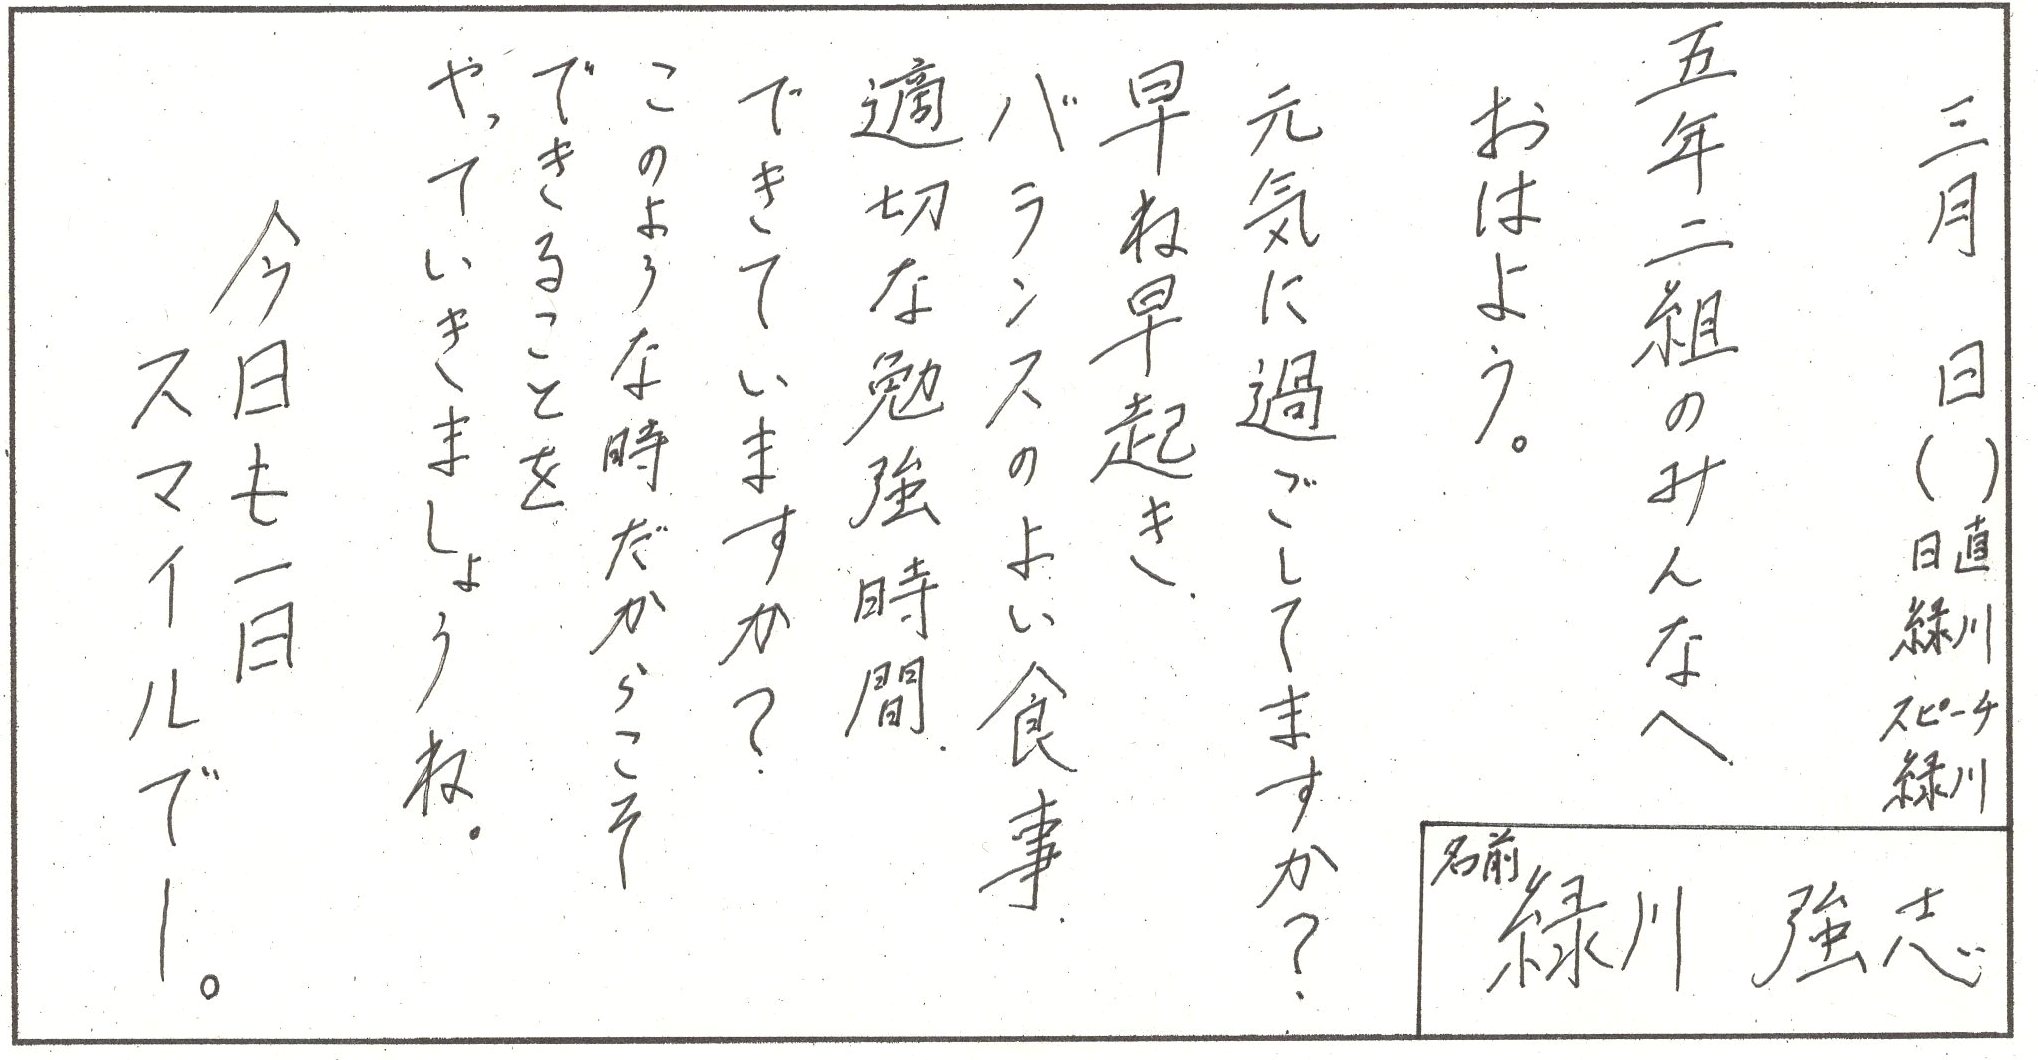 三月　日（　）日直緑川スピーチ緑川
名前
緑川　強志
五年二組のみんなへ
おはよう。
元気に過ごしてますか？
早ね早起き、
バランスのよい食事、
適切な勉強時間、
できていますか？
このような時だからこそ
できることを
やっていきましょうね。
今日も一日
スマイルでー。